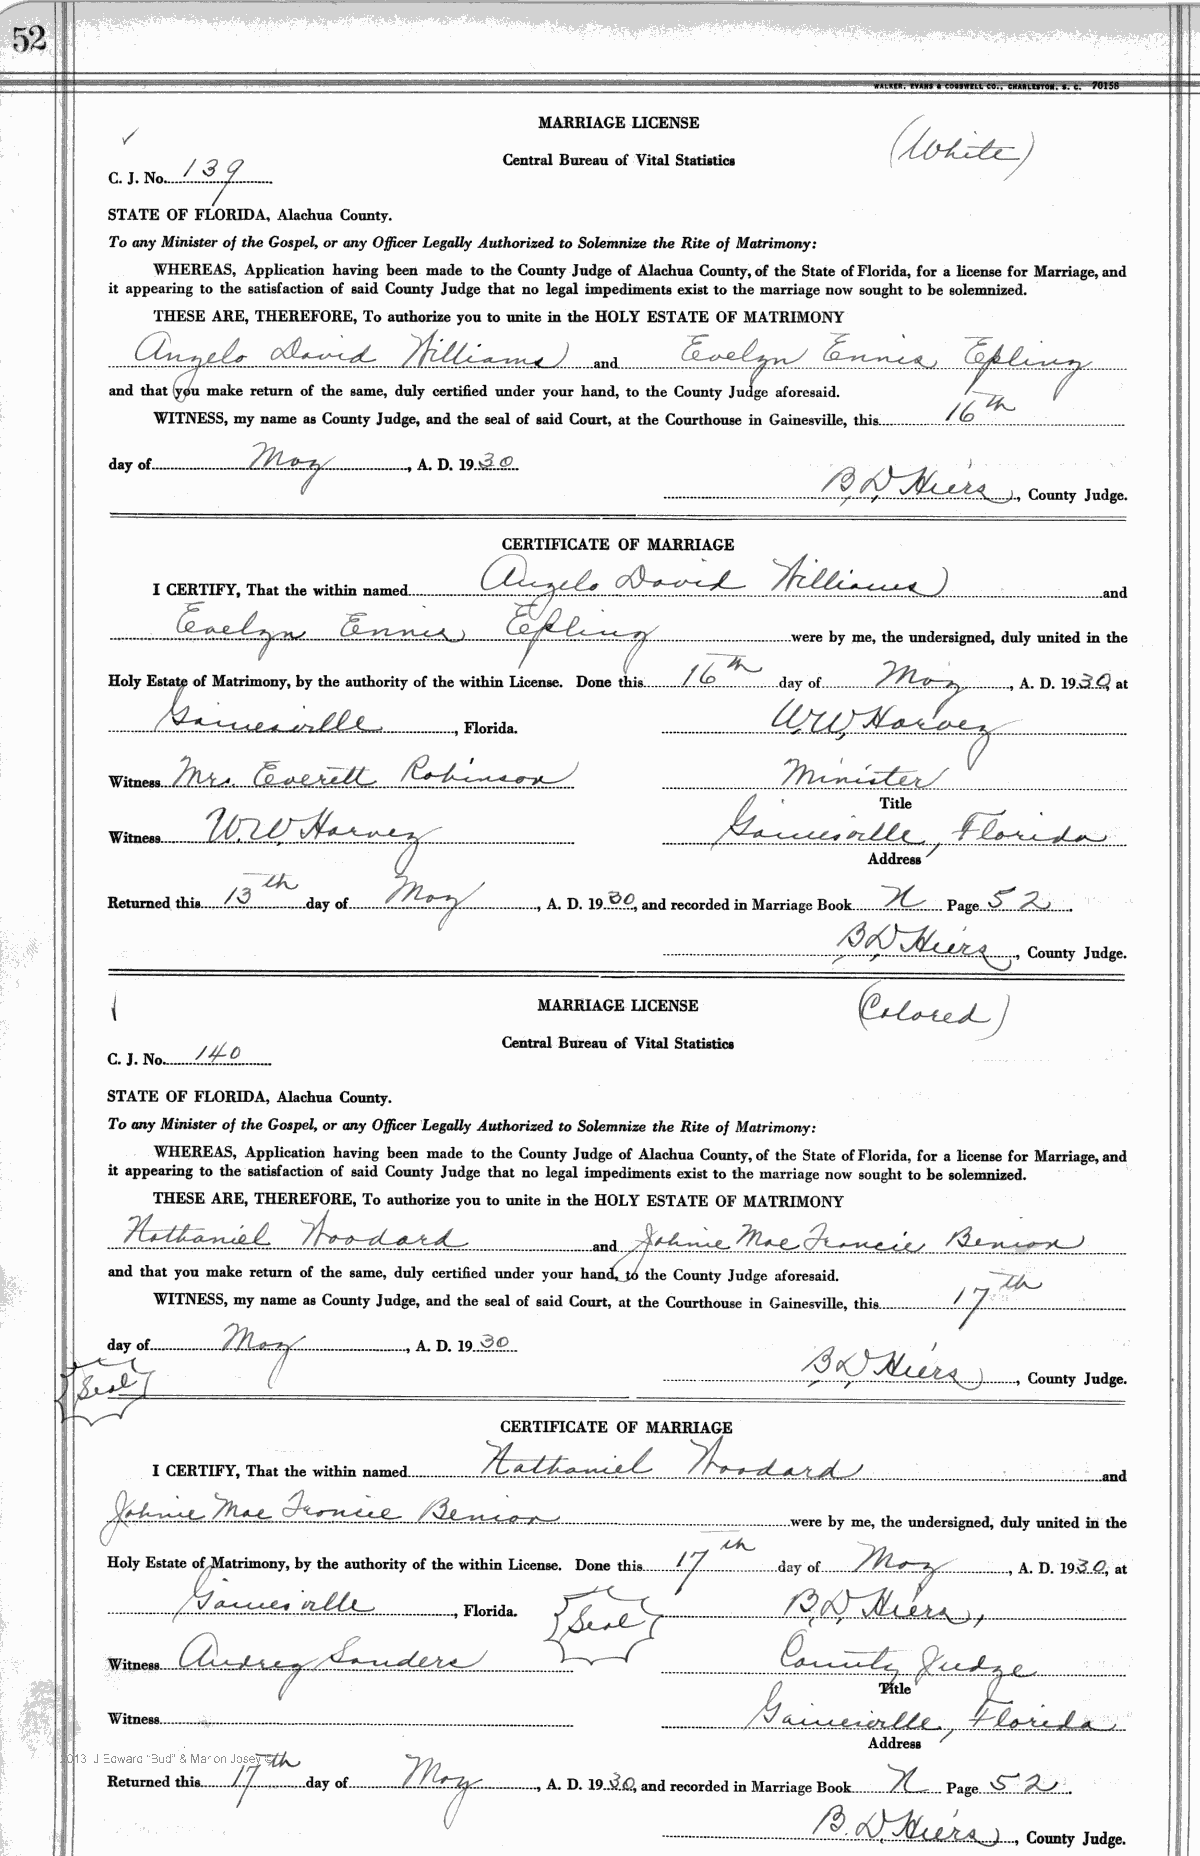 52
WALKER, EVANS & COGSWELL CO., CHARLESTON, S. C. 70158
MARRIAGE LICENSE
(White)
Central Bureau of Vital Statistics
C. J. No. 139
STATE OF FLORIDA, Alachua County.
To any Minister of the Gospel, or any Officer Legally Authorized to Solemnize the Rite of Matrimony:
WHEREAS, Application having been made to the County Judge of Alachua County, of the State of Florida, for a license for Marriage, and
it appearing to the satisfaction of said County Judge that no legal impediments exist to the marriage now sought to be solemnized.
THESE ARE, THEREFORE, To authorize you to unite in the HOLY ESTATE OF MATRIMONY
Angelo David Williams and Evelyn Ennis Epling
and that you make return of the same, duly certified under your hand, to the County Judge aforesaid.
WITNESS, my name as County Judge, and the seal of said Court, at the Courthouse in Gainesville, this 16th
day of May, A. D. 1930
B. D. Hiers, County Judge.
CERTIFICATE OF MARRIAGE
I CERTIFY, That the within named Angelo David Williams and
Evelyn Ennis Epling were by me, the undersigned, duly united in the
Holy Estate of Matrimony, by the authority of the within License. Done this 16th day of May, A. D. 1930, at
Gainesville, Florida. W. W. Harvey
Witness Mrs. Everett Robinson Minister
Title
Witness W. W. Harvey Gainesville, Florida
Address
Returned this 13th day of May, A. D. 1930, and recorded in Marriage Book N Page 52.
B. D. Hiers, County Judge.
MARRIAGE LICENSE
(Colored)
Central Bureau of Vital Statistics
C. J. No. 140
STATE OF FLORIDA, Alachua County.
To any Minister of the Gospel, or any Officer Legally Authorized to Solemnize the Rite of Matrimony:
WHEREAS, Application having been made to the County Judge of Alachua County, of the State of Florida, for a license for Marriage, and
it appearing to the satisfaction of said County Judge that no legal impediments exist to the marriage now sought to be solemnized.
THESE ARE, THEREFORE, To authorize you to unite in the HOLY ESTATE OF MATRIMONY
Nathaniel Woodard and Johnie Mae Francie Benion
and that you make return of the same, duly certified under your hand, to the County Judge aforesaid.
WITNESS, my name as County Judge, and the seal of said Court, at the Courthouse in Gainesville, this 17th
day of May, A. D. 1930
B. D. Hiers, County Judge.
Seal
CERTIFICATE OF MARRIAGE
I CERTIFY, That the within named Nathaniel Woodard and
Johnie Mae Francie Benion were by me, the undersigned, duly united in the
Holy Estate of Matrimony, by the authority of the within License. Done this 17th day of May, A. D. 1930, at
Gainesville, Florida. Seal B. D. Hiers,
Witness Audrey Sanders County Judge
Title
Witness Gainesville, Florida
Address
2013 J Edward "Bud" & Marion Josey ©
Returned this 17th day of May, A. D. 1930, and recorded in Marriage Book N Page 52.
B. D. Hiers, County Judge.